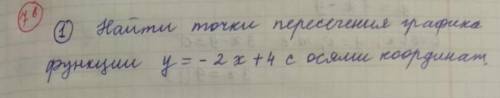 7в
① Найти точки пересечения графика
функции y = - 2x + 4 с осями координат